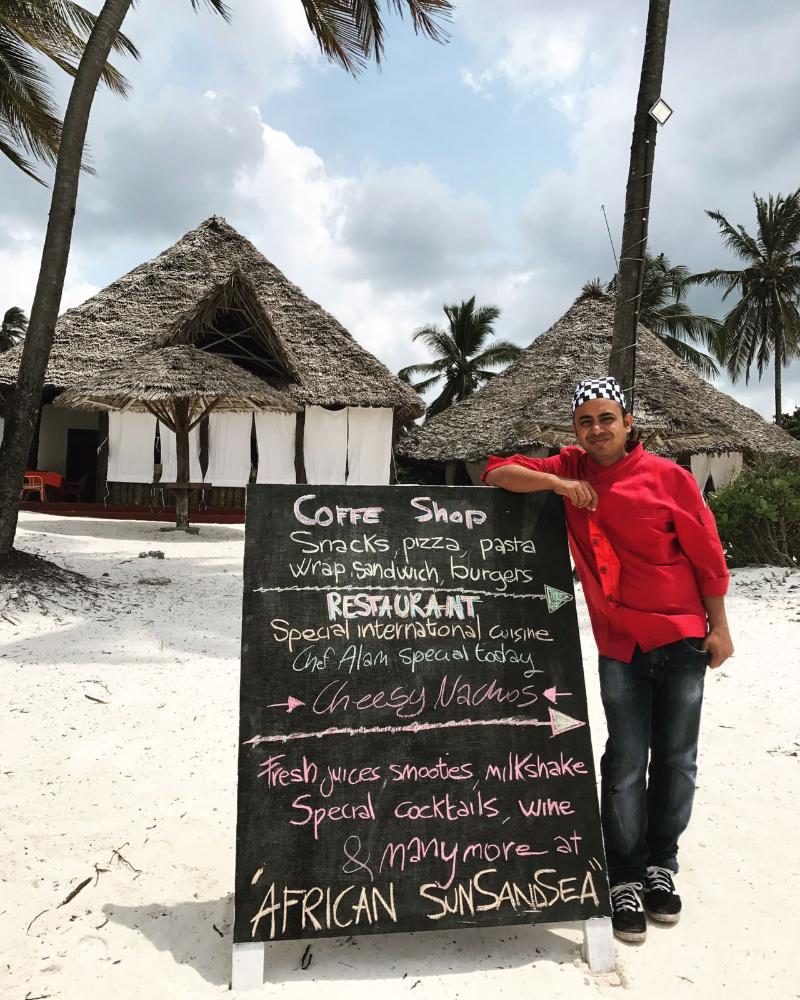 COFFE Shop
Snacks, pizza, pasta
wrap, sandwich, burgers
RESTAURANT
Special international cuisine
Chef Alam special today
Cheesy Nachos
Fresh juices, smooties, milkshake
Special cocktails, wine
& many more at
"AFRICAN SUNSANDSEA"